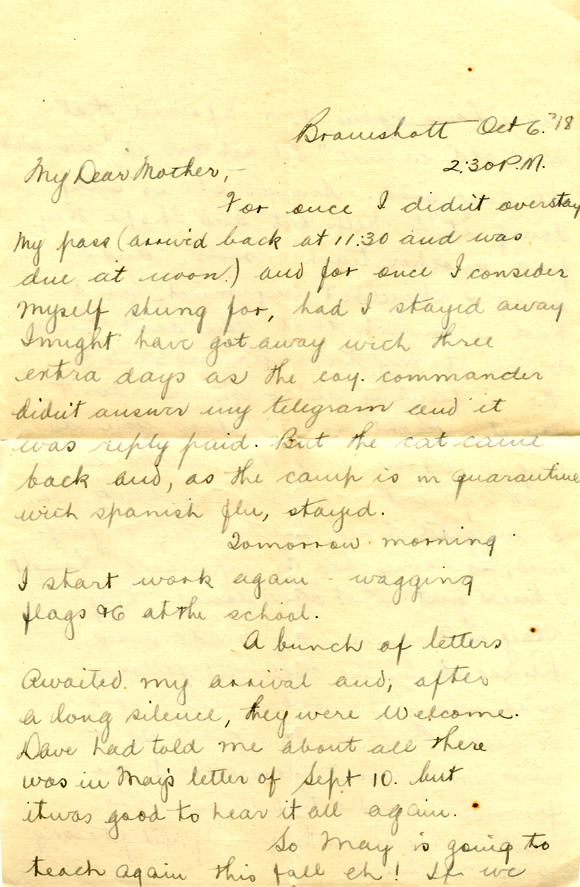 Bramshott Oct 6. '18
2:30 P.M.
My Dear Mother,-
For once I didn't overstay
my pass (arriv'd back at 11:30 and was
due at noon.) and for once I consider
myself stung for, had I stayed away
I might have got away with three
extra days as the coy. commander
didn't answer my telegram and it
was reply paid. But the cat came
back and, as the camp is in quarantine
with spanish flu, stayed.
Tomorrow morning
I start work again - wagging
flags &c at the school.
A bunch of letters
awaited my arrival and, after
a long silence, they were welcome.
Dave had told me about all there
was in May's letter of Sept 10. but
it was good to hear it all again.
So May is going to
teach again this fall eh! If we